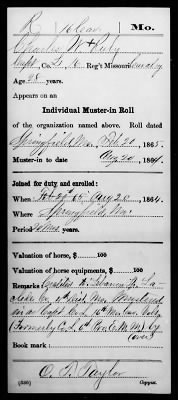 R | 16 Cav. | Mo.
Charles W. Ruby
Capt., Co. L, 16 Reg't Missouri Cavalry
Age 28 years.
Appears on an
Individual Muster-in Roll
of the organization named above. Roll dated
Springfield, Mo., Feb. 20, 1865.
Muster-in to date Aug 20, 1864.
Joined for duty and enrolled:
When Aug 20, 1864.
Where Springfield, Mo.
Period years.
Valuation of horse, $ /100
Valuation of horse equipments, $ /100
Remarks
Mustered
in as Capt. Co. L 16" Mo. Cav. Vols.
(Formerly Co. L 6" E. M. M.) by
(over)
Book mark:
O. P. Taylor
(339) Copyist.